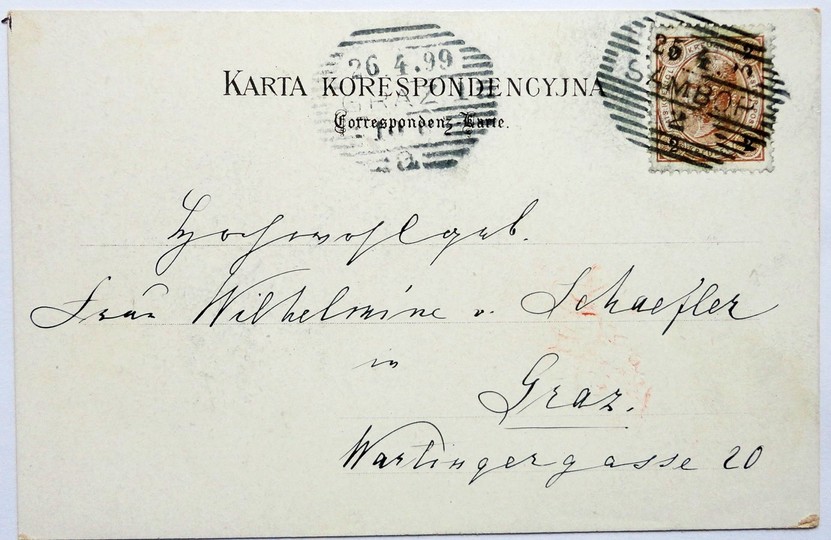 KARTA KORESPONDENCYJNA
Correspondenz-Karte.
26.4.99
GRAZ
25 4
SAMBOR
2 2
2 2
Hochwohlgeb.
Frau Wilhelmine v. Schaefler
in
Graz.
Wartingergasse 20